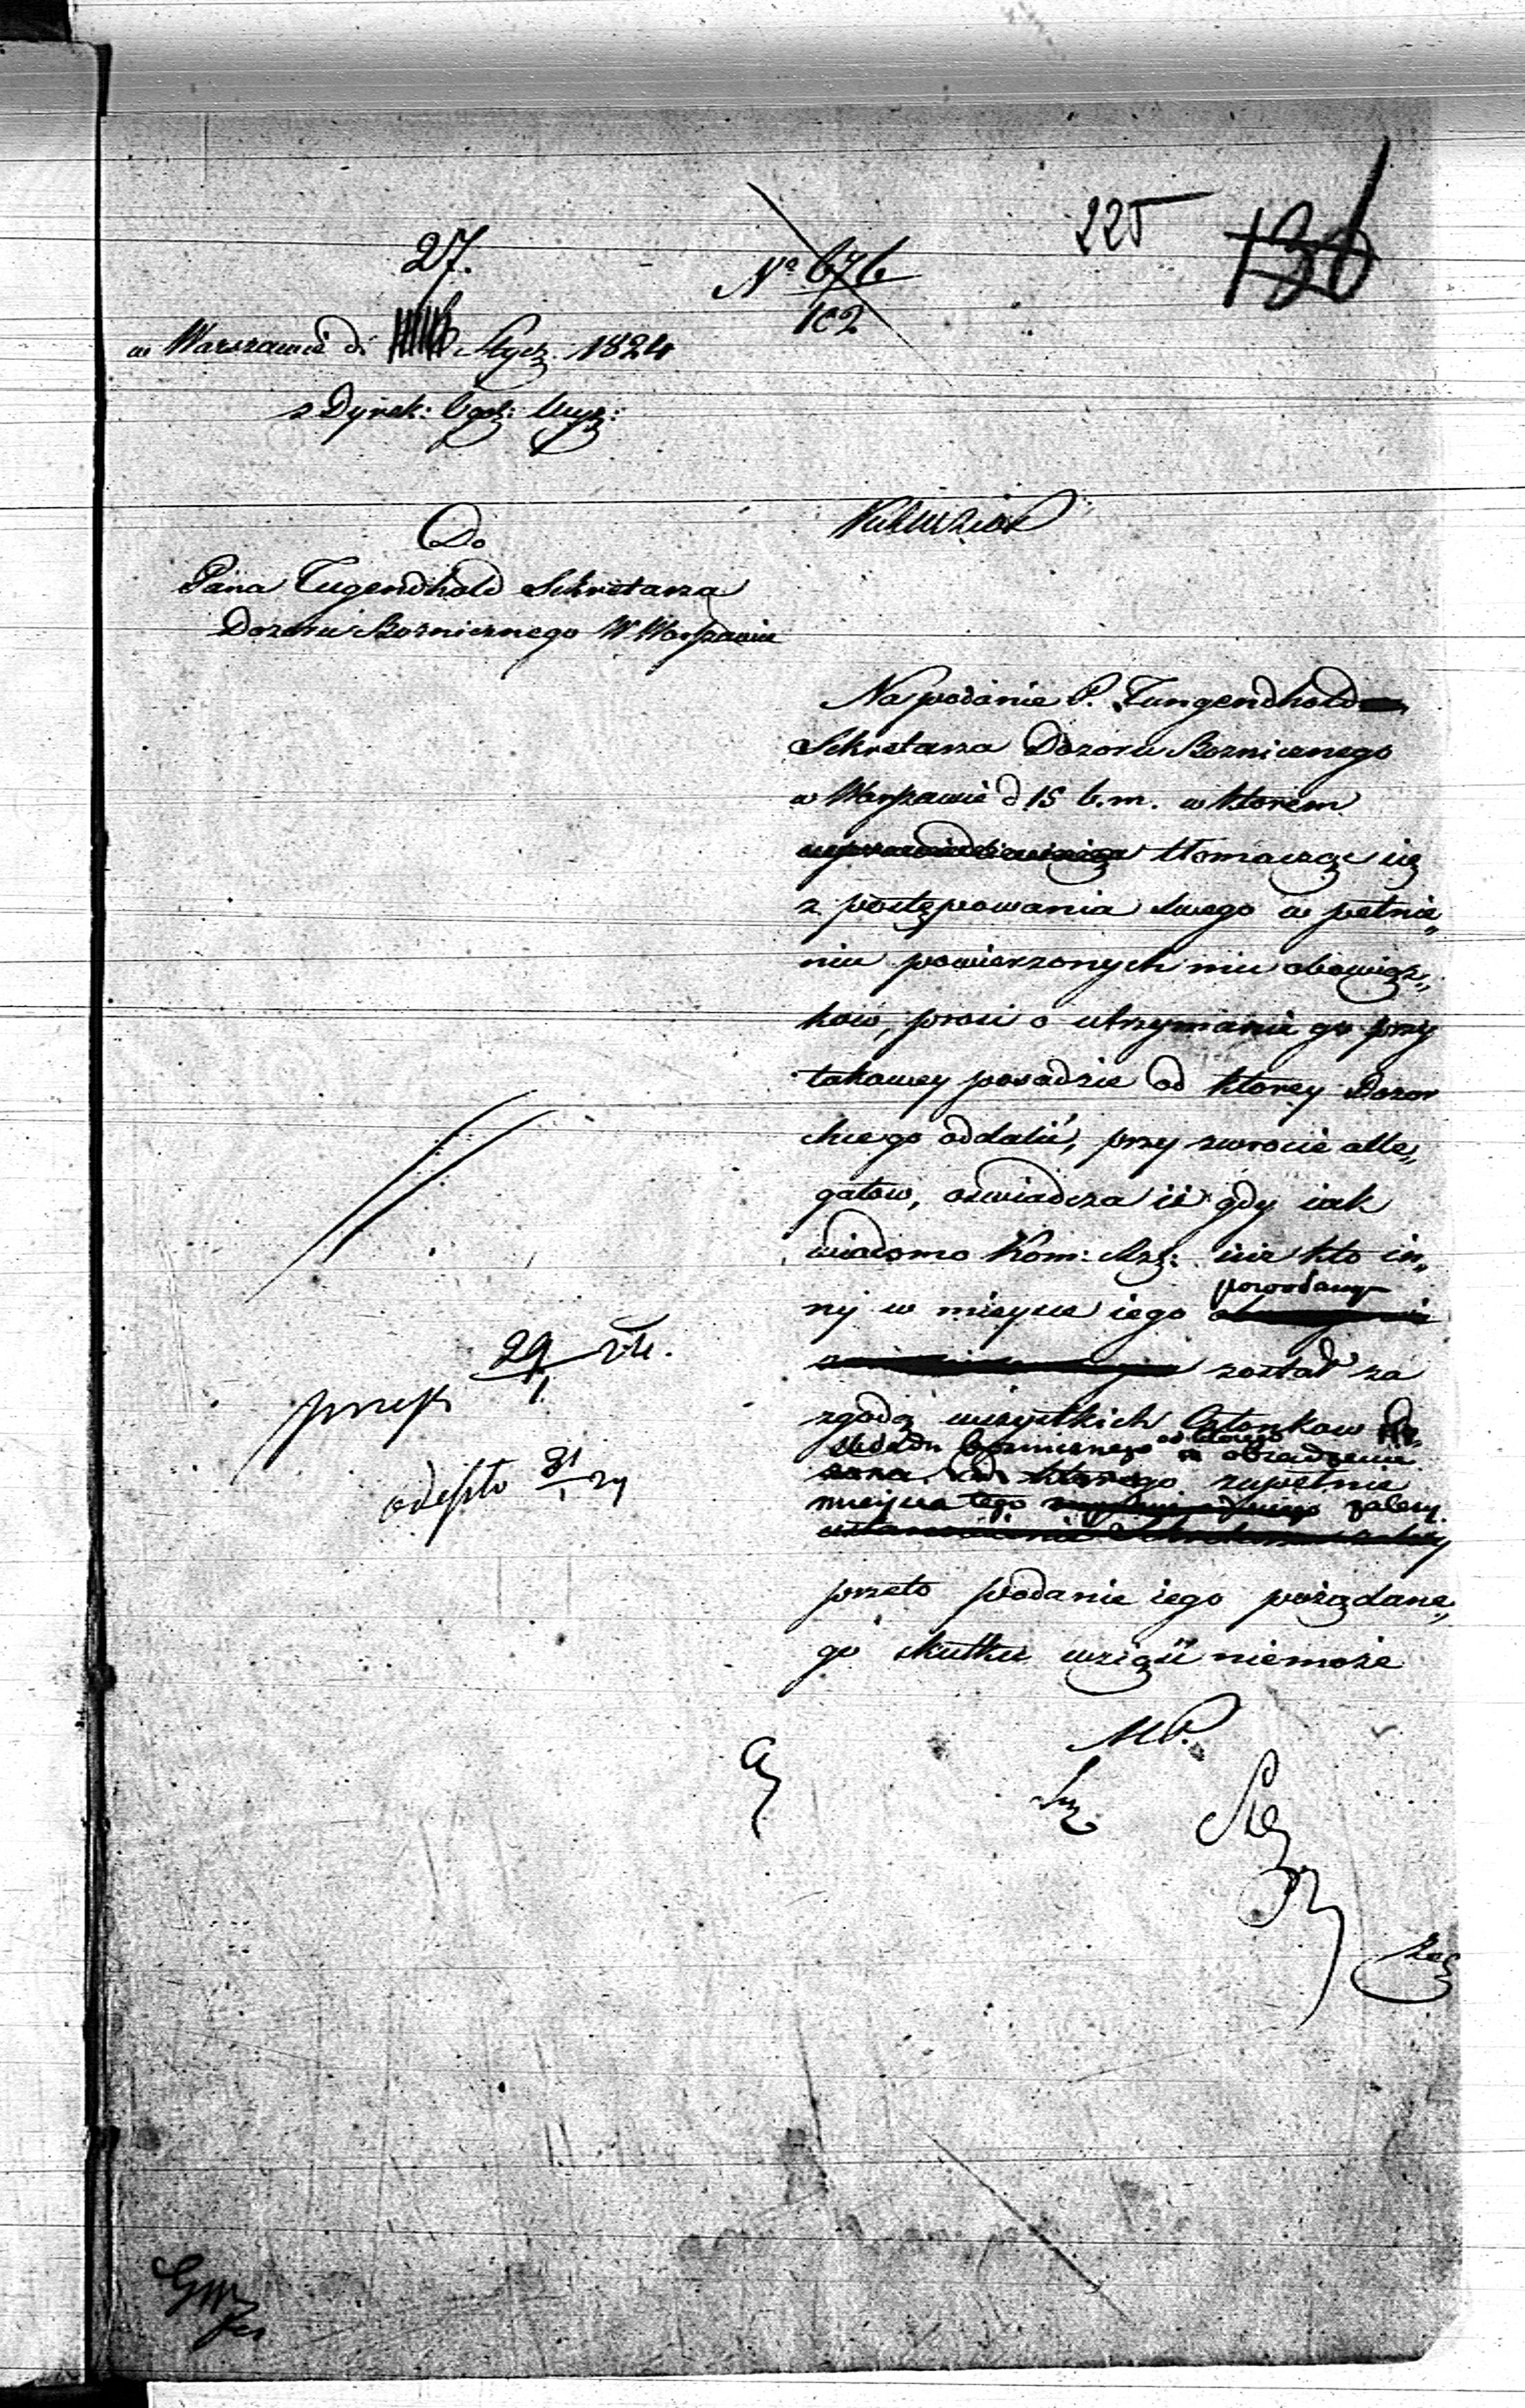 225 136
27.
Nº 676
102
w Warszawie d: Stycz. 1824
z Dyrek:
Do
Pana Tugendhold Sekretarza
Dozoru Boznicznego W Warszawie
Na podanie P. Tungendhold
Sekretarza Dozoru Boznicznego
w Warszawie d 15 b. m. w ktorem
tłomacząc się
z postępowania swego w pełnie„
niu powierzonych mu obowiąz„
kow, prosi o utrzymanie go przy
takowey posadzie od ktorey Dozor
chce go oddalić, przy zwrocie alle„
gatow, oswiadcza iż gdy iak
wiadomo Kom: Rzą: iuż kto in„
powołany
ny w mieysce iego
został za
zgodą wszystkich Członkow
Składu boznicznego od ktorego obsadzenie
zupełnie
mieysca tego zależy
przeto podanie iego pożądane„
go skutku wziąść niemoże
29/1 24.
odeszło 31/1 24
M P.